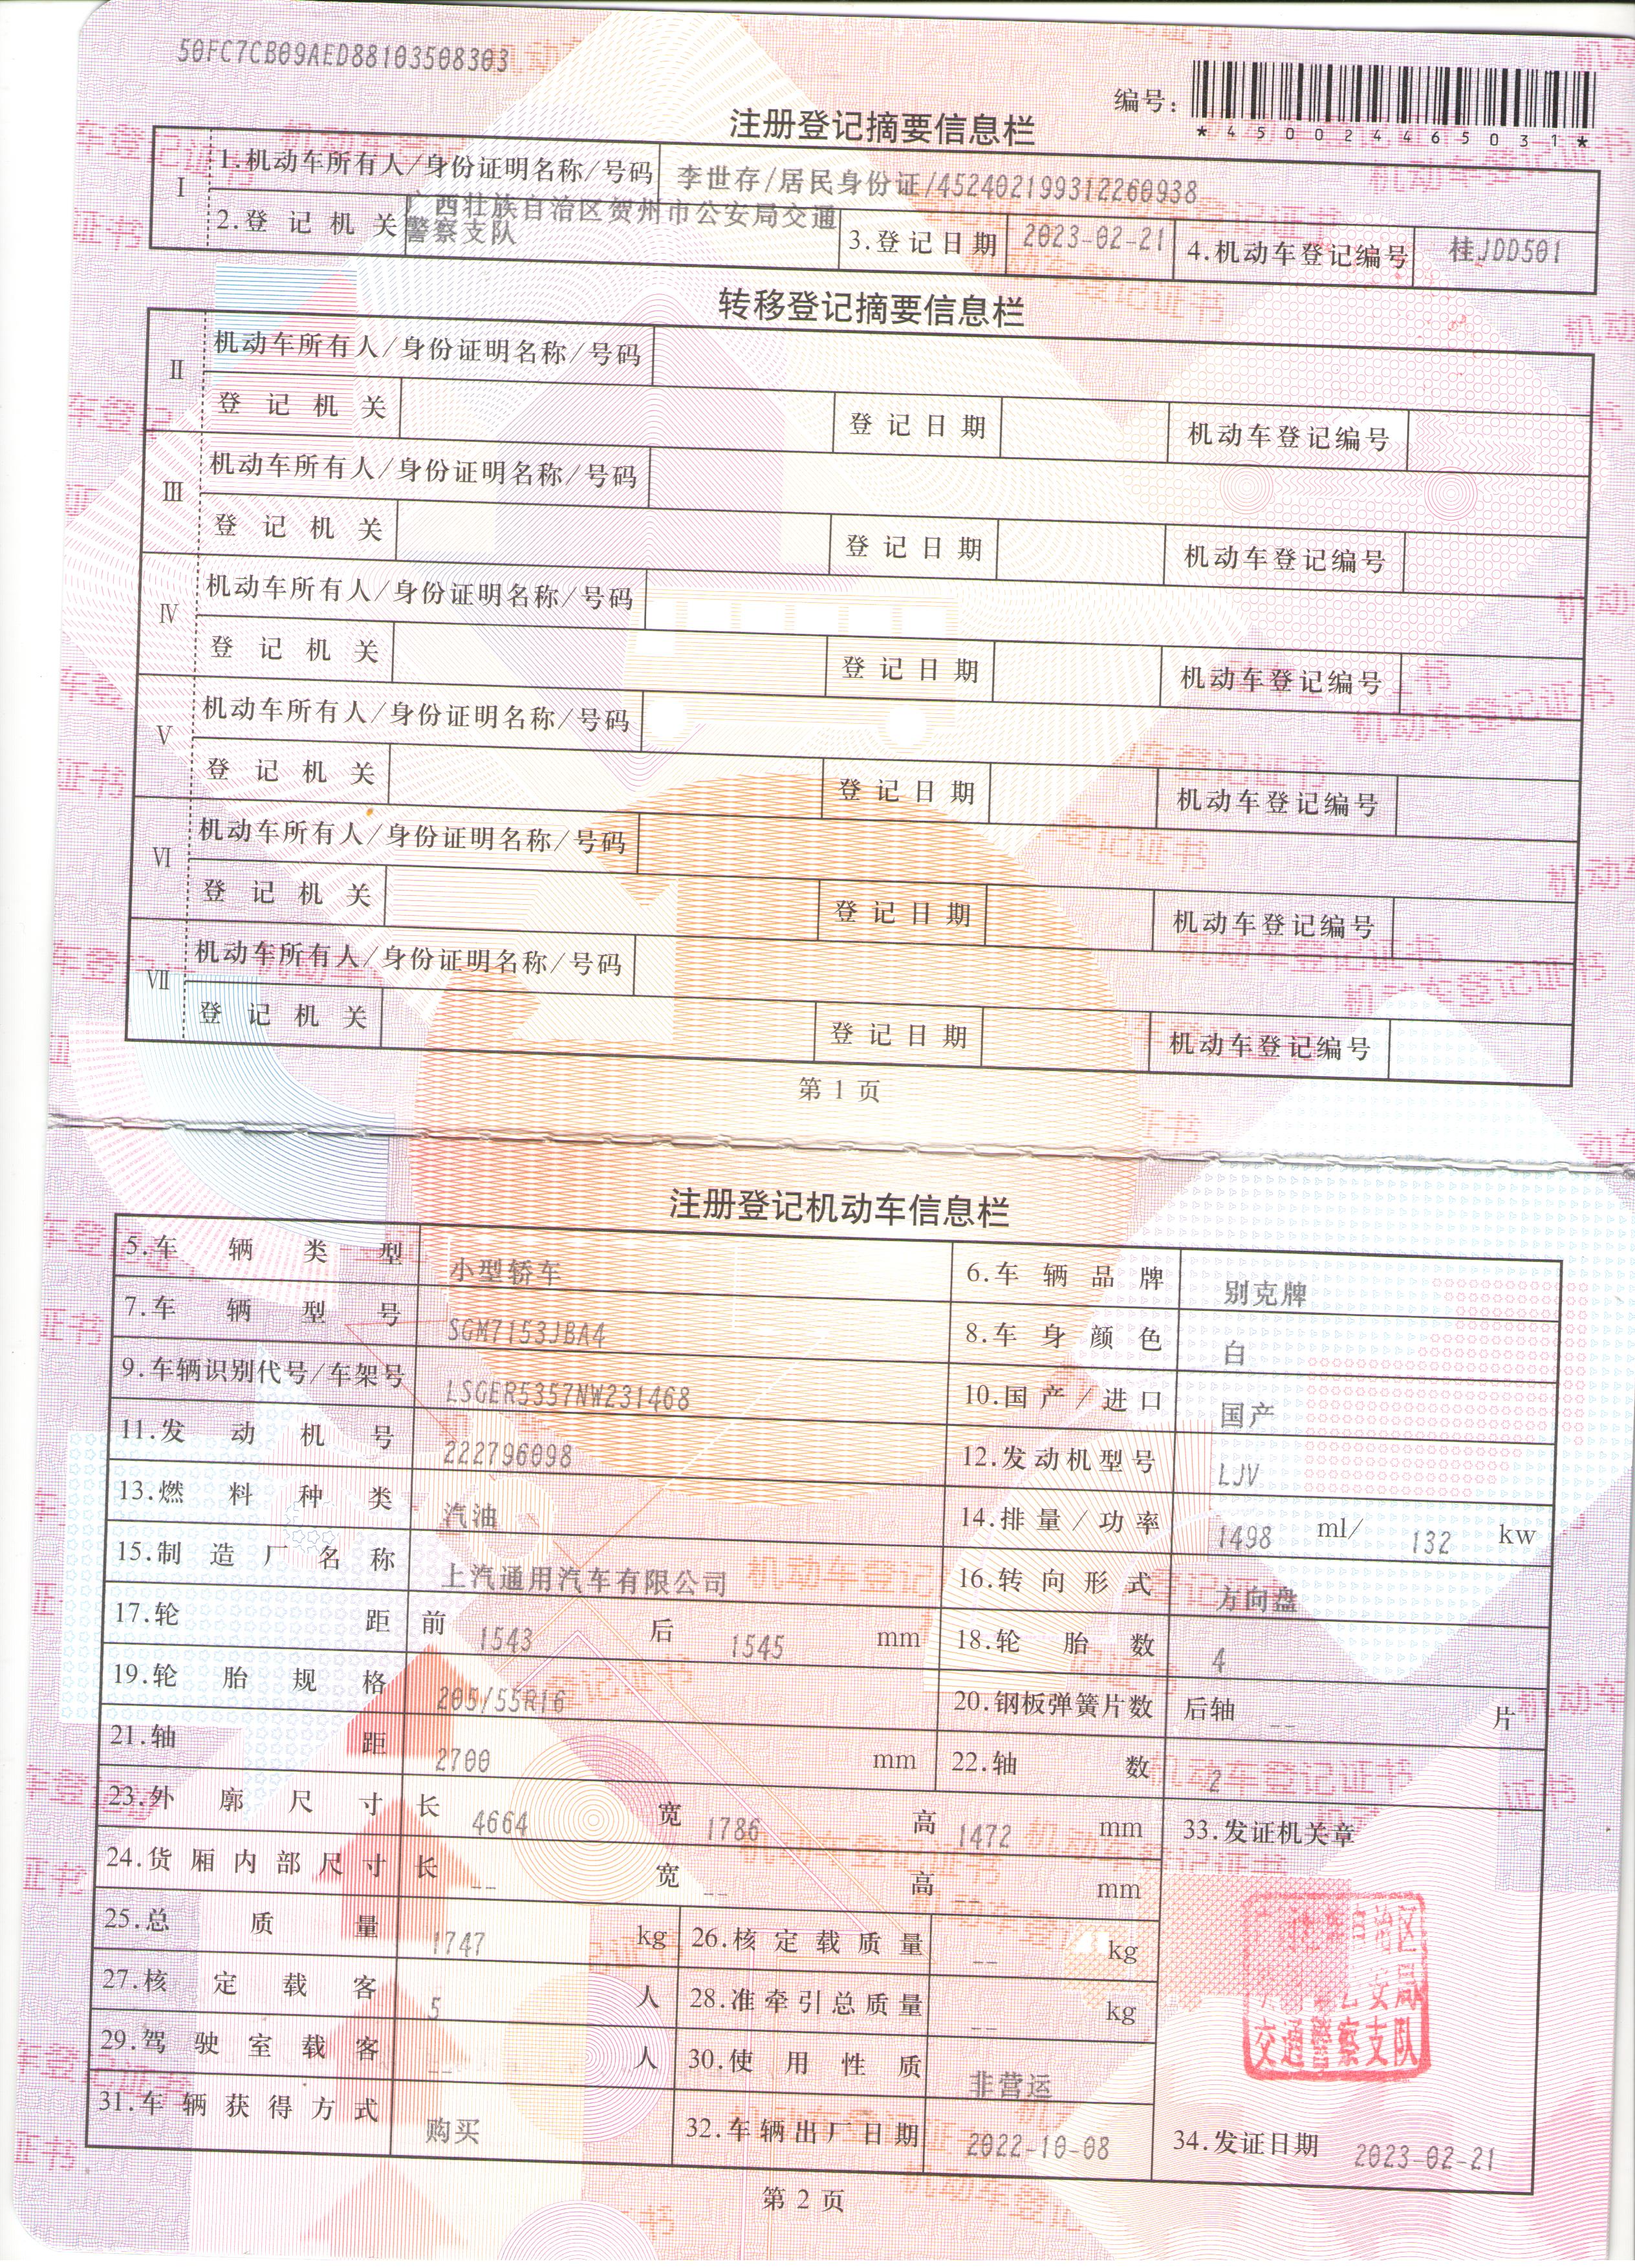 50FC7CB09AED88103508303
编号：
*450024465031*
注册登记摘要信息栏
Ⅰ 1.机动车所有人/身份证明名称/号码 李世存/居民身份证/452402199312260938
2.登记机关 广西壮族自治区贺州市公安局交通警察支队 3.登记日期 2023-02-21 4.机动车登记编号 桂JDD501
转移登记摘要信息栏
Ⅱ 机动车所有人/身份证明名称/号码
登记机关 登记日期 机动车登记编号
Ⅲ 机动车所有人/身份证明名称/号码
登记机关 登记日期 机动车登记编号
Ⅳ 机动车所有人/身份证明名称/号码
登记机关 登记日期 机动车登记编号
Ⅴ 机动车所有人/身份证明名称/号码
登记机关 登记日期 机动车登记编号
Ⅵ 机动车所有人/身份证明名称/号码
登记机关 登记日期 机动车登记编号
Ⅶ 机动车所有人/身份证明名称/号码
登记机关 登记日期 机动车登记编号
第 1 页
注册登记机动车信息栏
5.车辆类型 小型轿车 6.车辆品牌 别克牌
7.车辆型号 SGM7153JBA4 8.车身颜色 白
9.车辆识别代号/车架号 LSGER5357NW231468 10.国产/进口 国产
11.发动机号 222796098 12.发动机型号 LJV
13.燃料种类 汽油 14.排量/功率 1498 ml/ 132 kw
15.制造厂名称 上汽通用汽车有限公司 16.转向形式 方向盘
17.轮距 前 1543 后 1545 mm 18.轮胎数 4
19.轮胎规格 205/55R16 20.钢板弹簧片数 后轴 -- 片
21.轴距 2700 mm 22.轴数 2
23.外廓尺寸 长 4664 宽 1786 高 1472 mm 33.发证机关章
24.货厢内部尺寸 长 -- 宽 -- 高 -- mm
25.总质量 1747 kg 26.核定载质量 -- kg
27.核定载客 5 人 28.准牵引总质量 -- kg
29.驾驶室载客 -- 人 30.使用性质 非营运
交通警察支队
31.车辆获得方式 购买 32.车辆出厂日期 2022-10-08 34.发证日期 2023-02-21
第 2 页